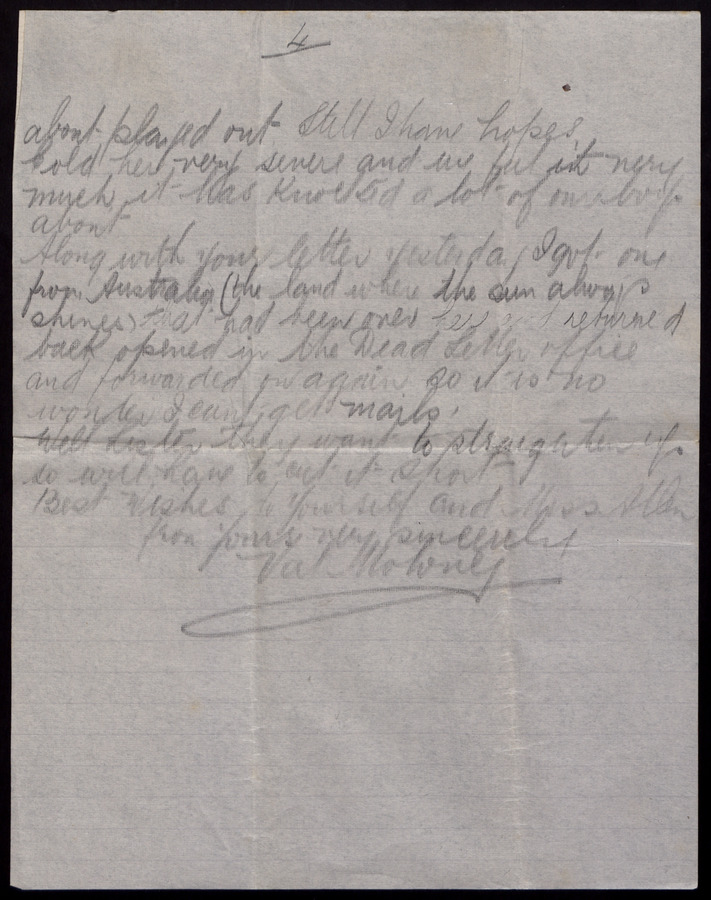 4
about played out Still I have hopes
Cold here very severe and we feel it very
much it has knocked a lot of our boys
about
Along with your letter yesterday I got one
from Australia (the land where the sun always
shines) that had been over here and returned
back opened in the Dead Letter office
and forwarded on again so it is no
wonder I cant get mails.
Well Sister they want to straighten up
so will have to cut it short
Best Wishes to Yourself and Miss
from yours very sincerely
Val